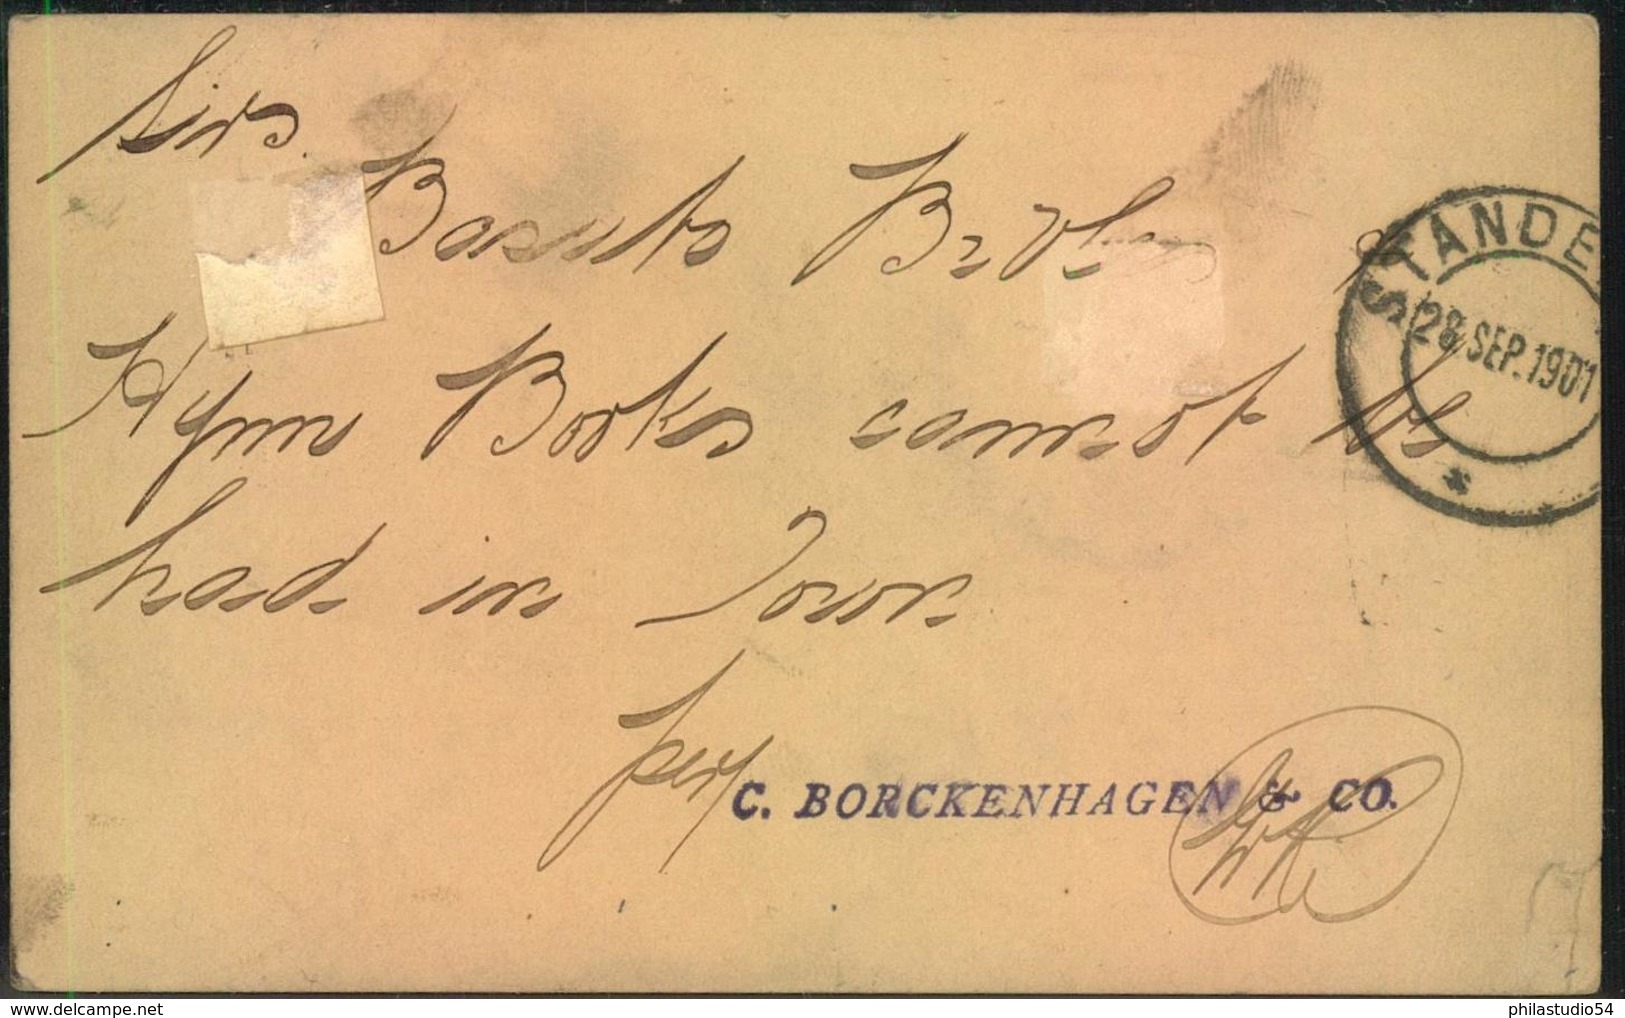 Sirs.
Basuto Bibles &
Hymn Books cannot be
had in Town
per C. BORCKENHAGEN & CO.
STANDE
28 SEP. 1901
*
philastudio54